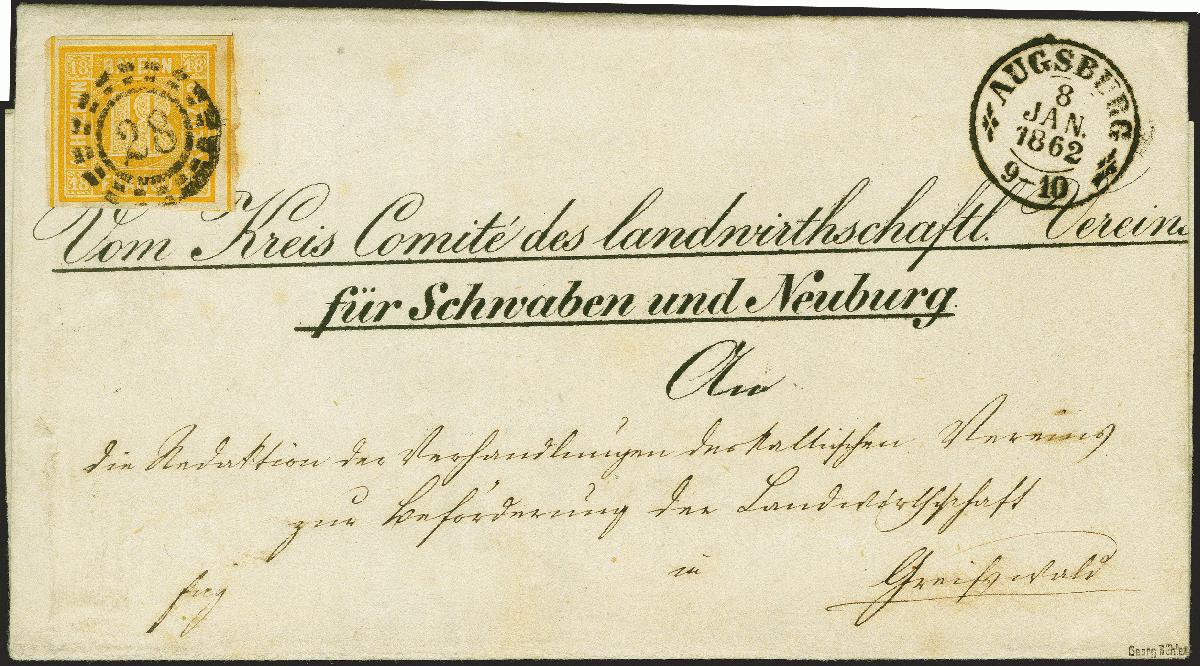 18 BAYERN 18
28
18 18
AUGSBURG
8
JAN.
1862
9-10
Vom Kreis Comité des landwirthschaftl. Vereins
für Schwaben und Neuburg.
An
die Redaktion der Verhandlungen des baltischen Vereins
zur Beförderung der Landwirthschaft
in
Greifswald
Georg Bühler